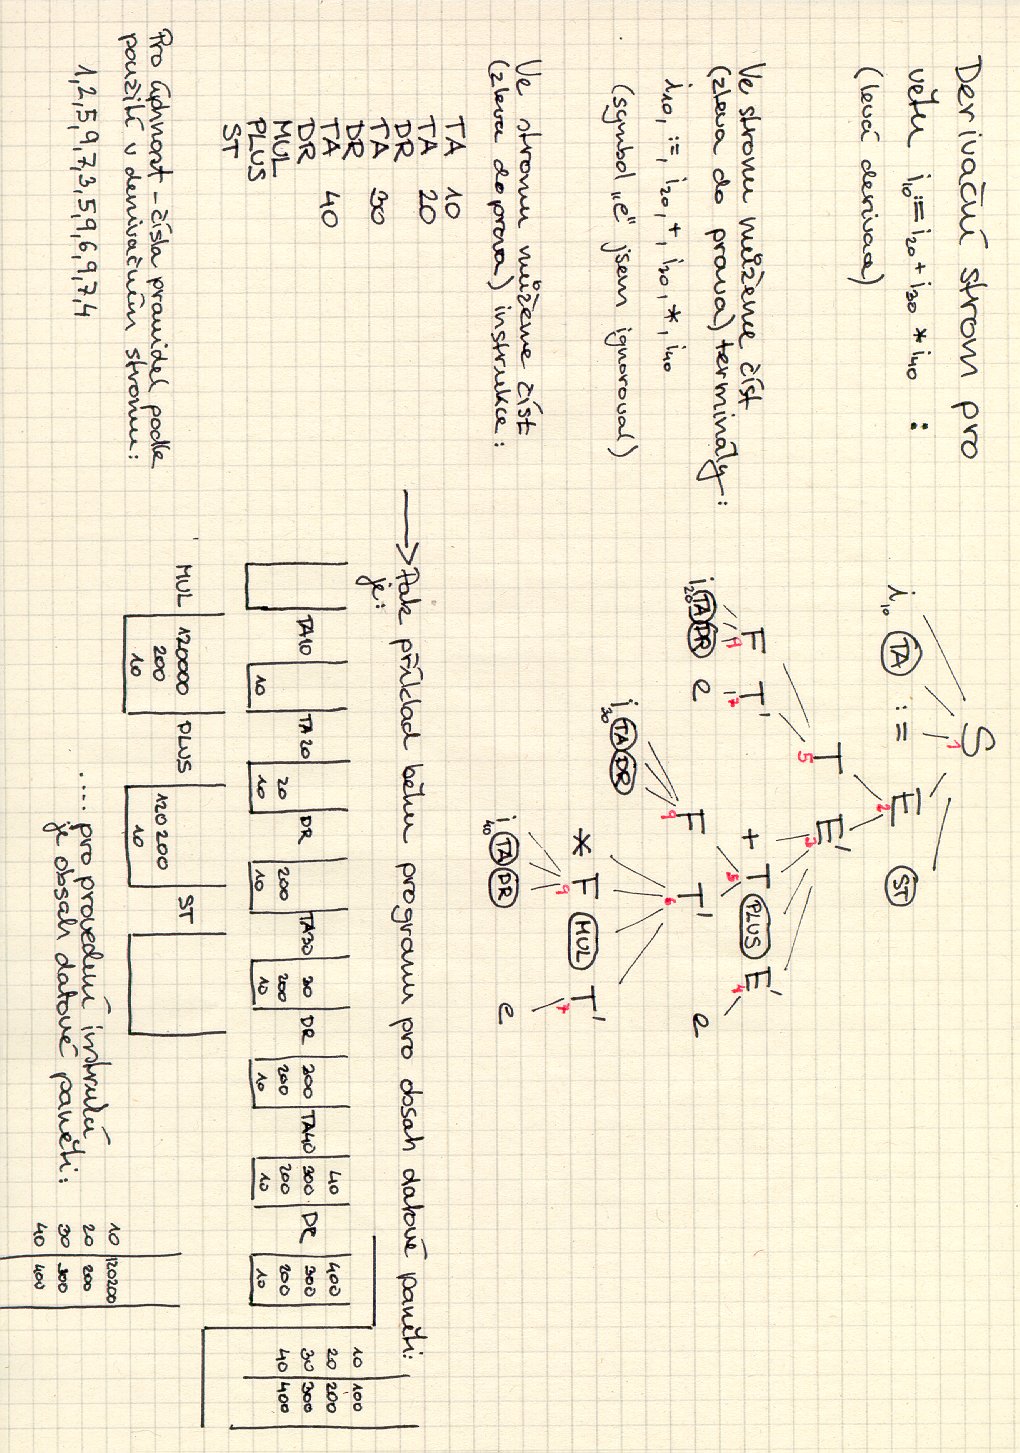 Derivační strom pro
větu i10:=i20+i30*i40 :
(levá derivace)
Ve stromu můžeme číst
(zleva do prava) terminály:
i10, :=, i20, +, i30, *, i40
(symbol „e“ jsem ignoroval)
Ve stromu můžeme číst
(zleva doprava) instrukce:
TA 10
TA 20
DR
TA 30
DR
TA 40
DR
MUL
PLUS
ST
Pro úplnost - čísla pravidel podle
použití v derivačním stromu:
1,2,5,9,7,3,5,9,6,9,7,4
S 1
i10 TA := E 2 ST
T 5 E' 3
F 9 T' 7 + T 5 PLUS E' 4
i20 TA DR e F 9 T' 6 e
i30 TA DR * F 9 MUL T' 7
i40 TA DR e
→ Pak příklad běhu programu pro obsah datové paměti:
je:
10 100
20 200
30 300
40 400
TA10
10
TA20
20
10
DR
200
10
TA30
30
200
10
DR
300
200
10
TA40
40
300
200
10
DR
400
300
200
10
MUL
120000
200
10
PLUS
120200
10
ST
.... pro provedení instrukcí
je obsah datové paměti:
10 120200
20 200
30 300
40 400